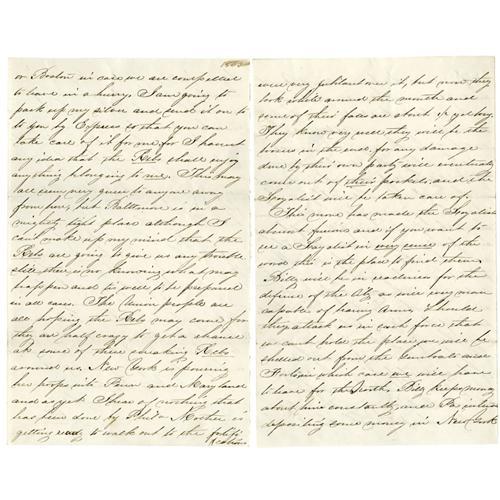 1863
or Boston in case we are compelled
to leave in a hurry. I am going to
pack up my silver and send it on to
to you by Express so that you can
take care of it for me for I havent
any idea that the Rebs shall enjoy
anything belonging to me. This may
all seem very queer to anyone away
from here, but Baltimore is in a
mighty tight place although I
can't make up my mind that the
Rebs are going to give us any trouble
still there is no knowing what may
happen and tis well to be prepared
in all cases. The Union people are
all hoping the Rebs may come for
they are half crazy to get a chance
at some of these sneaking Rebs
around us. New York is pouring
her troops into Penn and Maryland
and as yet I hear of nothing that
has been done by Phil
getting ready to walk out to the fortifi
cations
were very jubilant over it, but now they
look white around the mouth and
some of their faces are about
They know very well they will be the
losers in the end, for any damage
done by their own party will eventually
come out of their pockets, and the
Loyalist will be taken care of.
This move has made the Loyalist
almost furious and if you want to
see a Loyalist in every sense of the
word this is the place to find them.
Billy will be in readiness for the
defence of the City as will every man
capable of bearing Arms. Should
they attack us in such force that
we can't hold the place we will be
shelled out from the Gunboats and
Forts in which case we will have
to leave for the North. Billy keeps money
about him constantly and Pa intends
depositing some money in New York